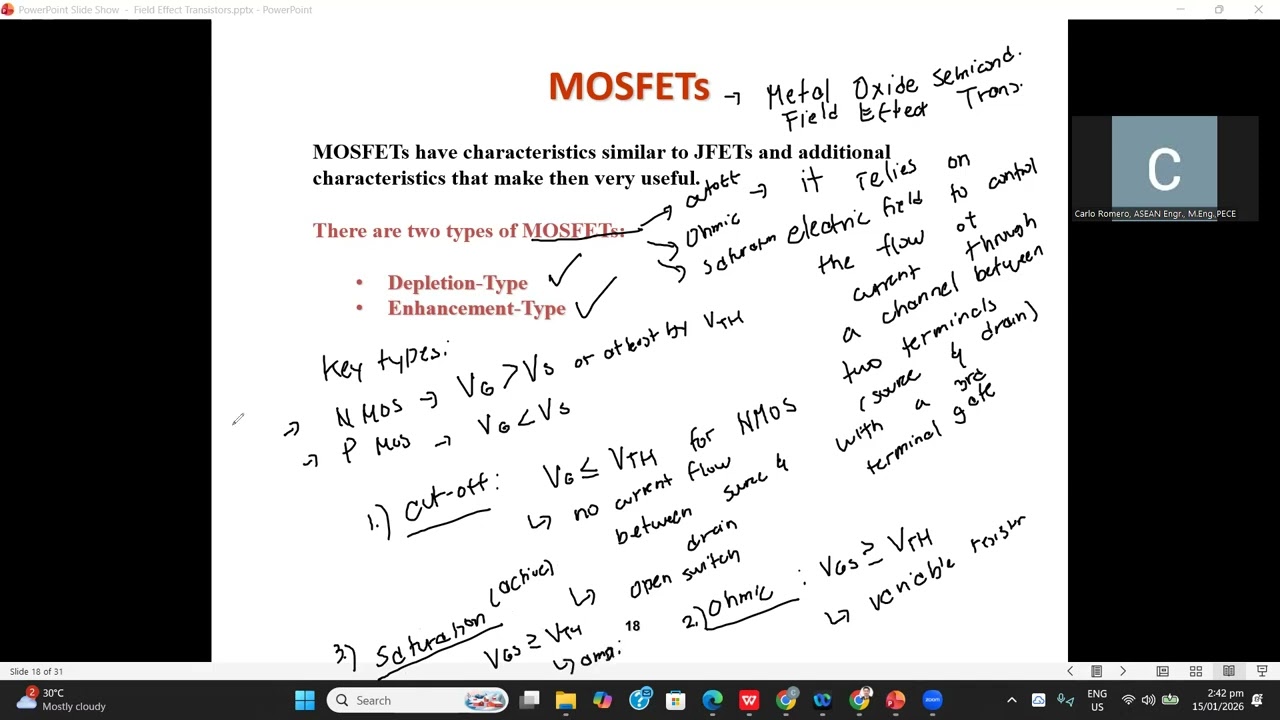 PowerPoint Slide Show - Field Effect Transistors.pptx - PowerPoint
MOSFETs → Metal Oxide Semicond.
Field Effect Trans.
MOSFETs have characteristics similar to JFETs and additional
characteristics that make then very useful.
There are two types of MOSFETs:
• Depletion-Type
• Enhancement-Type
cutoff
Ohmic
saturation
→ it relies on
electric field to control
the flow of
current through
a channel between
two terminals
(source & drain)
with a 3rd
terminal gate
Key types:
→ N MOS → VG > VS or atleast by VTH
→ P MOS → VG < VS
1.) cut-off: VG ≤ VTH for NMOS
↳ no current flow
between source &
drain
↳ open switch
2.) Ohmic : VGS ≥ VTH
↳ variable resistor
3.) Saturation (active)
VGS ≥ VTH
↳ amp:
18
C
Carlo Romero, ASEAN Engr., M.Eng.,PECE
Slide 18 of 31
2
30°C
Mostly cloudy
Search
zoom
ENG
US
2:42 pm
15/01/2026